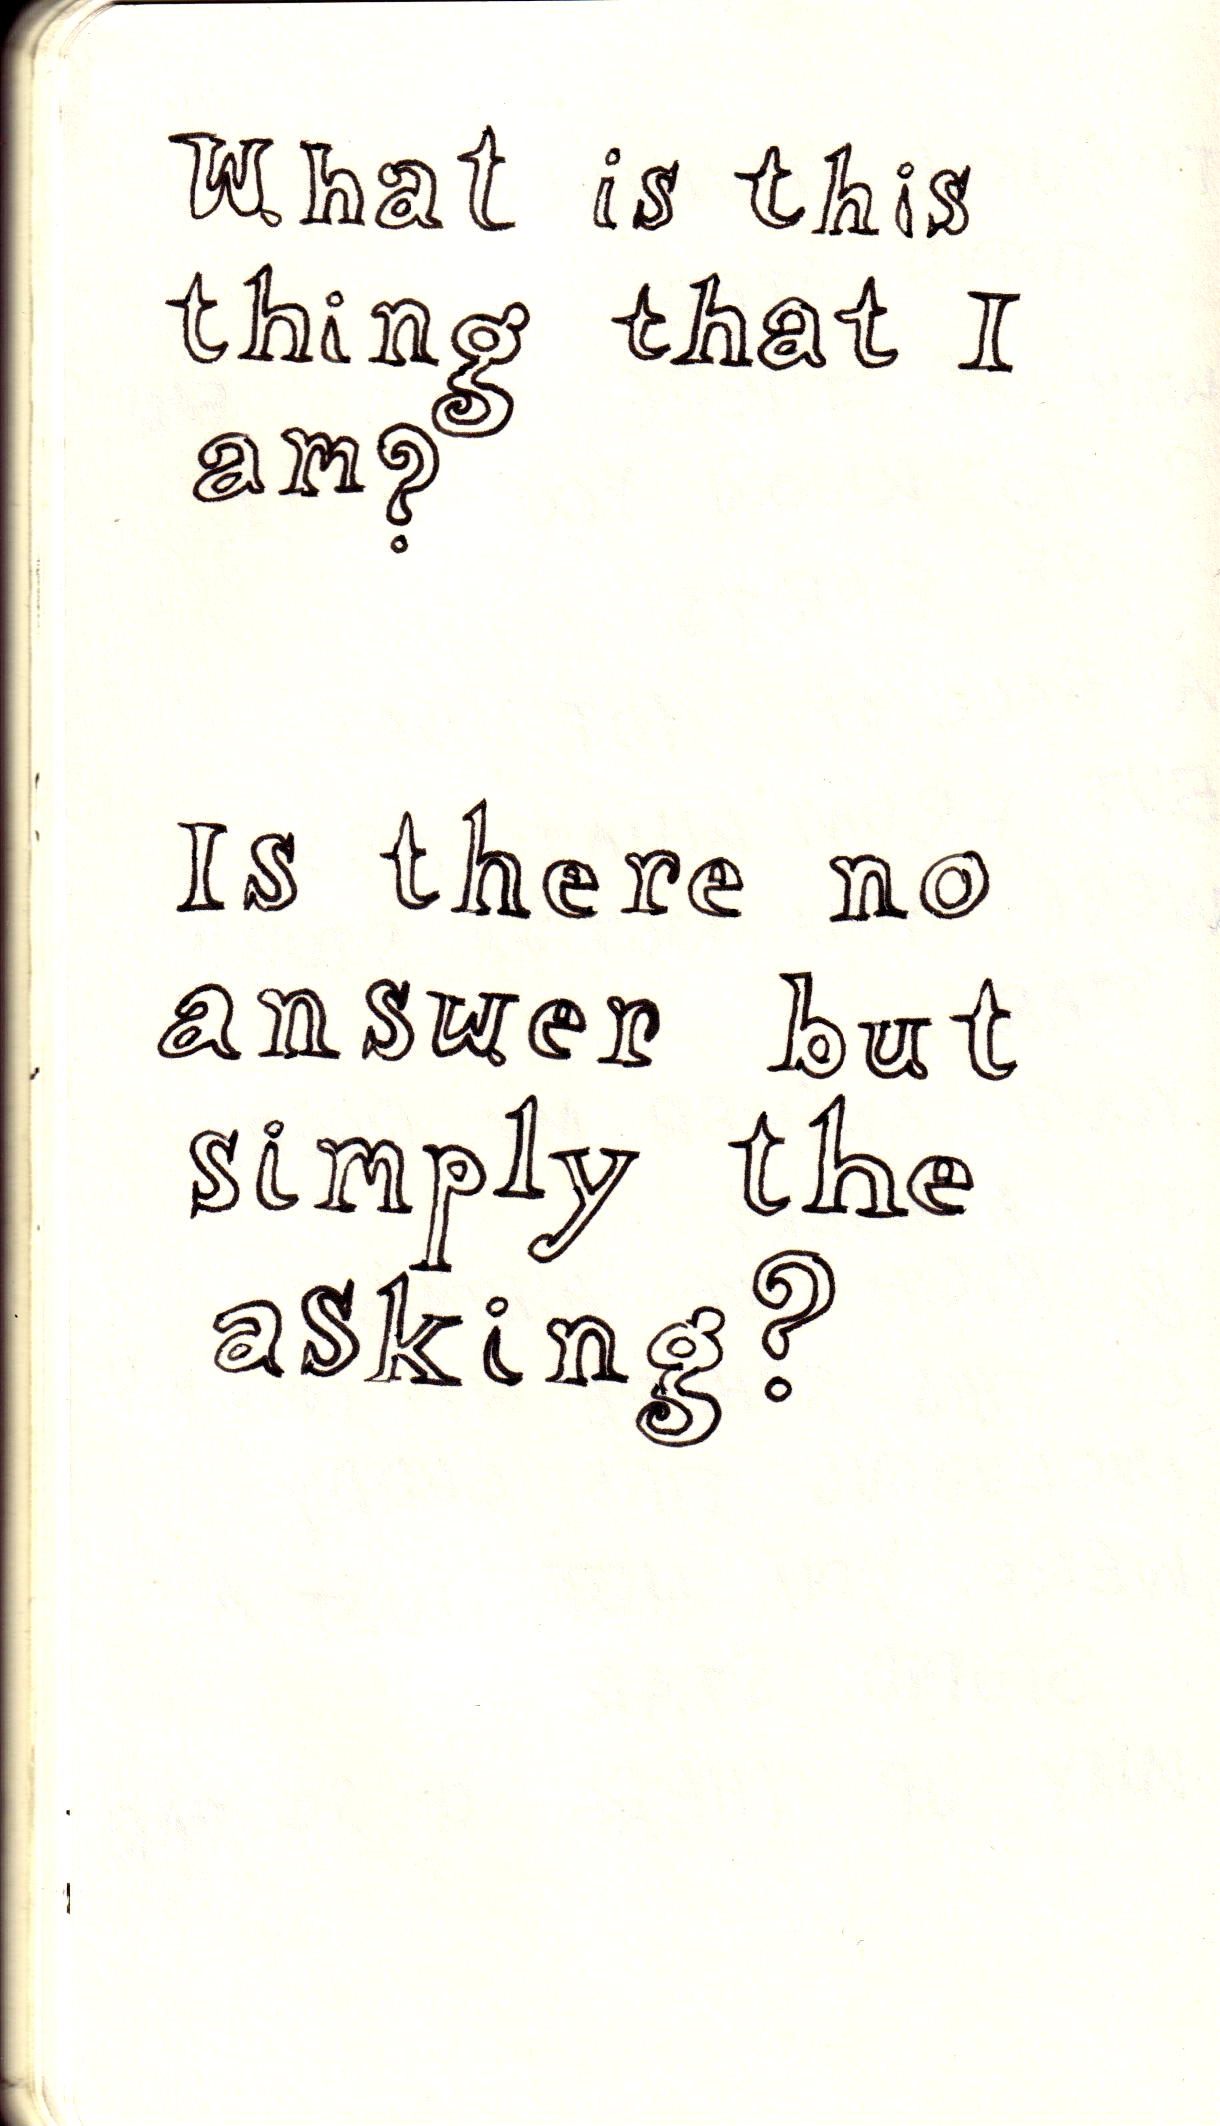 What is this
thing that I
am?
Is there no
answer but
simply the
asking?